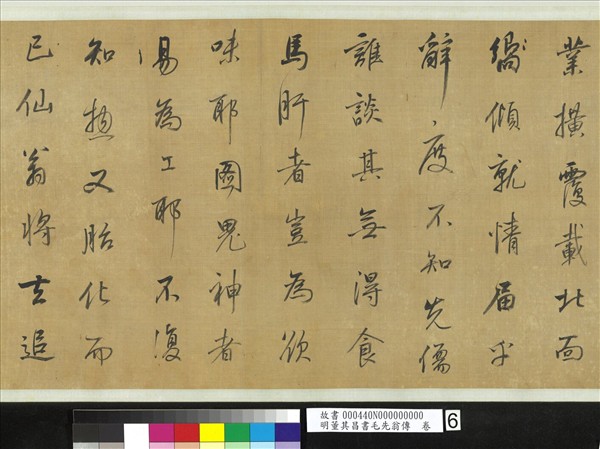 業橫覆載北面
嚮傾就情屆乎
辭辭度不知先儒
誰談其無得食
馬肝者豈為欲
味耶圖鬼神者
易為工耶不復
知愁又胎化而
已仙翁將去追
故書 000440N000000000
明董其昌書毛先翁傳 卷
6